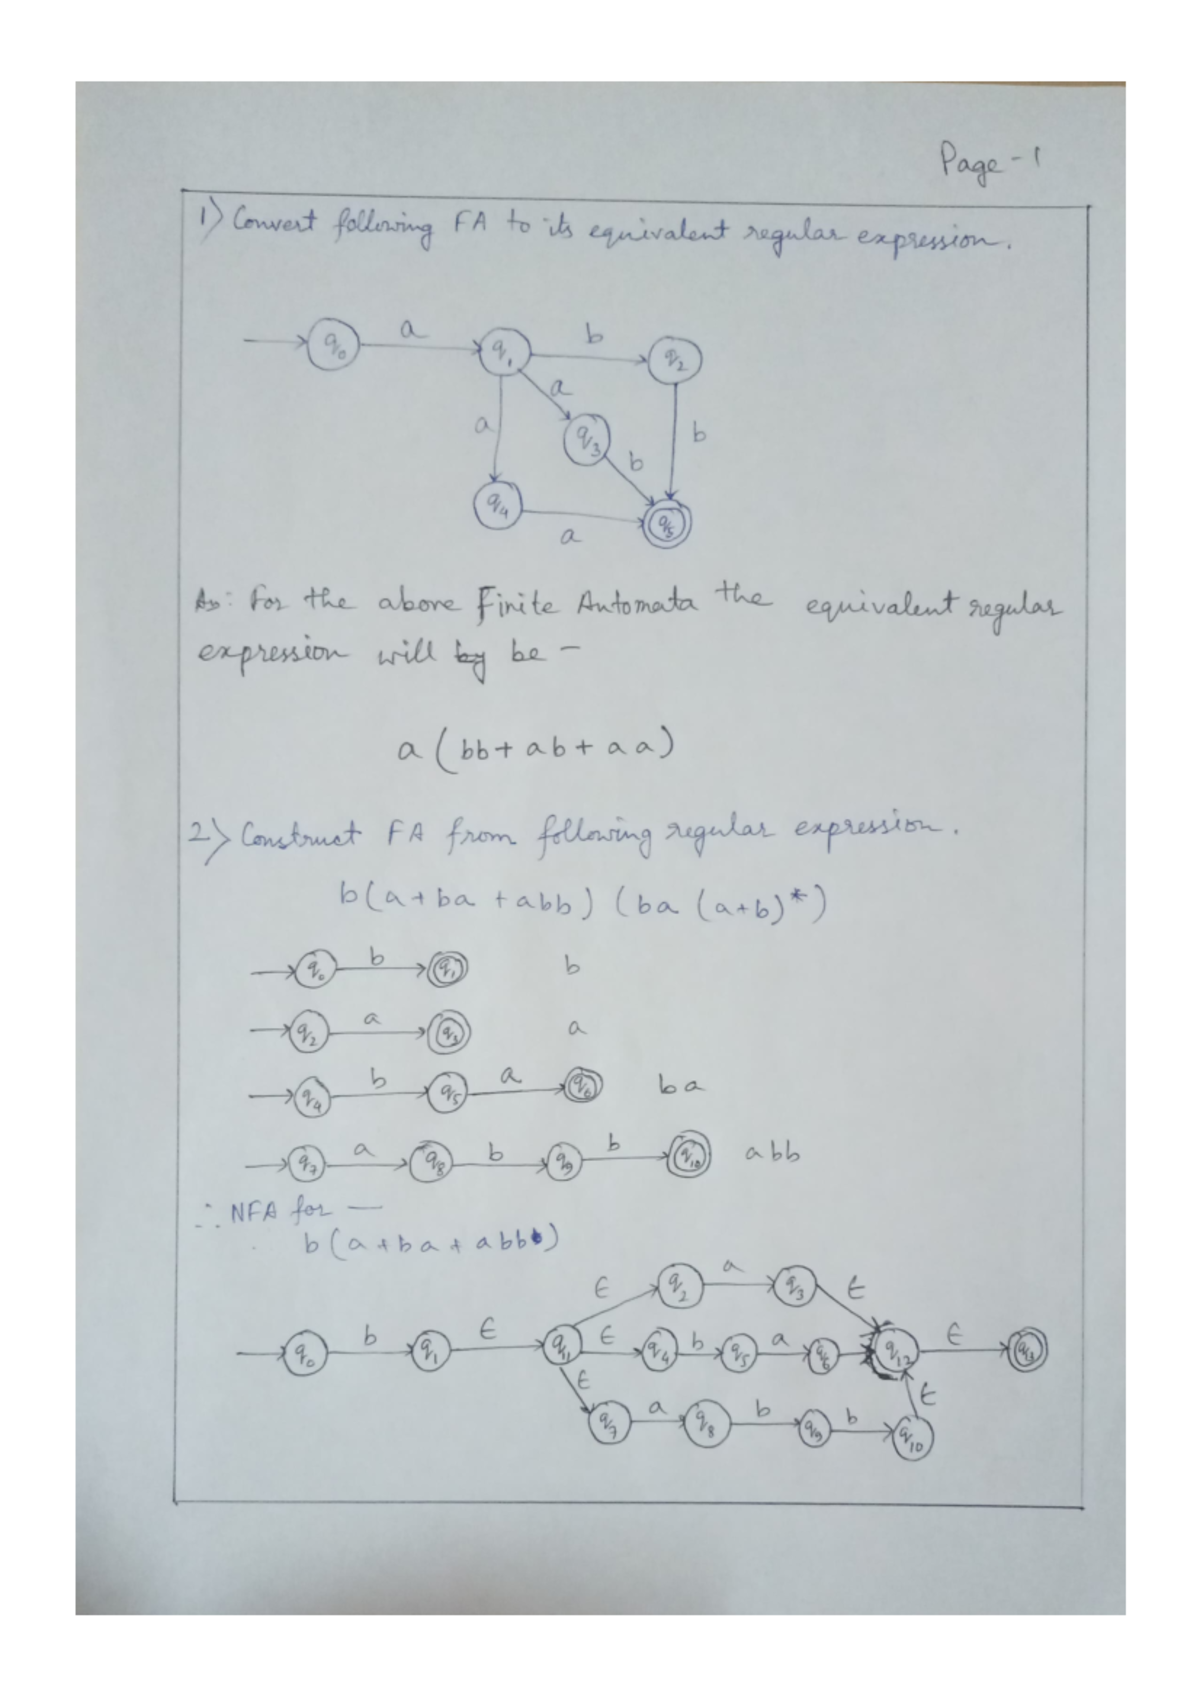 Page - 1
1) Convert following FA to its equivalent regular expression.
q0 a q1 b q2
a
a q3 b
b
q4 a q5
Ans: For the above Finite Automata the equivalent regular
expression will by be -
a (bb + ab + aa)
2) Construct FA from following regular expression.
b(a+ba + abb) (ba (a+b)*)
q0 b q1 b
q2 a q3 a
q4 b q5 a q6 ba
q7 a q8 b q9 b q10 abb
∴ NFA for —
b(a + ba + abb)
ϵ q2 a q3 ϵ
q0 b q1 ϵ q11 ϵ q4 b q5 a q6 q12 ϵ q13
ϵ q7 a q8 b q9 b q10 ϵ